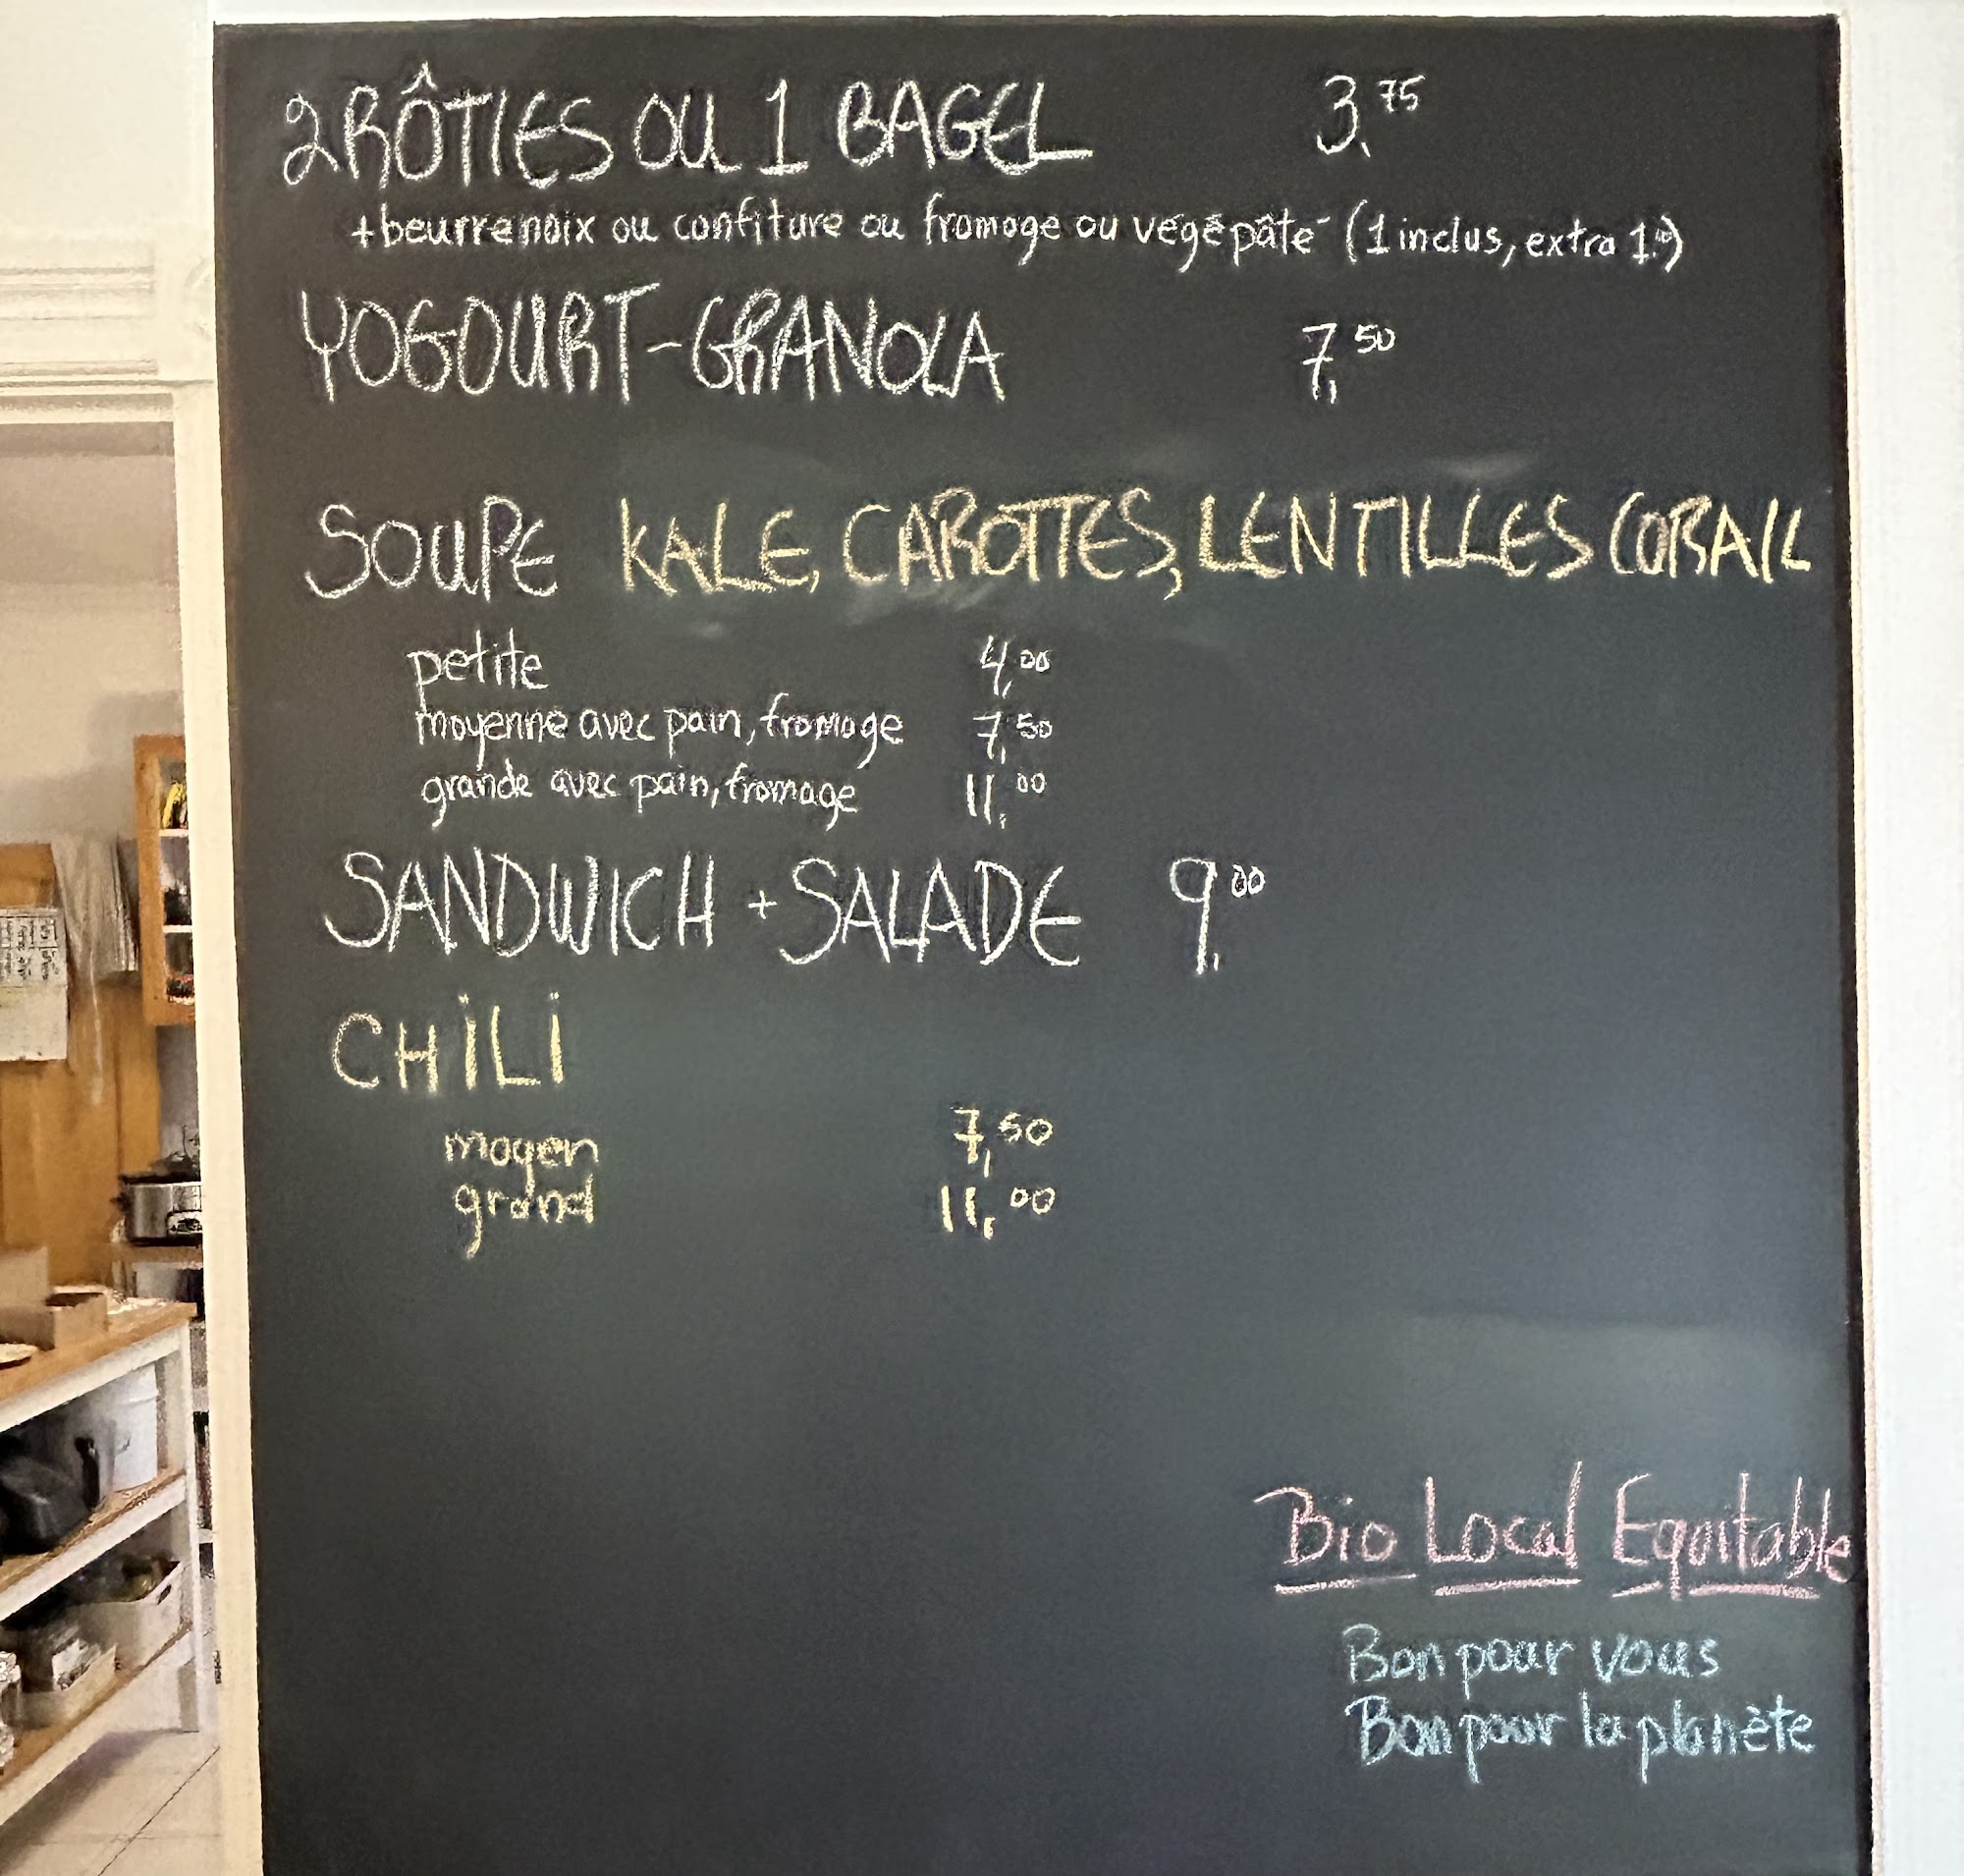 2 RÔTIES OU 1 BAGEL 3.75
+ beurre noix ou confiture ou fromage ou végé pâté (1 inclus, extra 1.00)
YOGOURT-GRANOLA 7,50
SOUPE KALE, CAROTTES, LENTILLES CORAIL
petite 4,00
moyenne avec pain, fromage 7,50
grande avec pain, fromage 11,00
SANDWICH + SALADE 9,00
CHILI
moyen 7,50
grand 11,00
Bio Local Equitable
Bon pour vous
Bon pour la planète